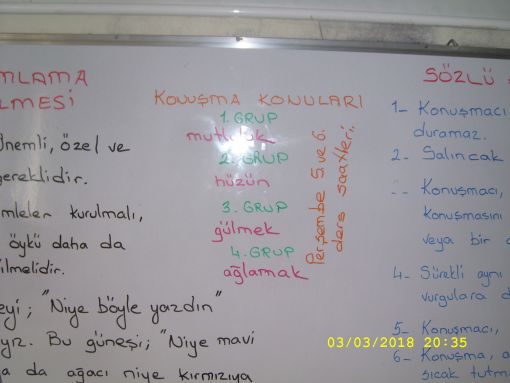 MLAMA
LMESİ
önemli, özel ve
gereklidir.
mleler kurulmalı,
öykü daha da
ilmelidir.
eyi; "Niye böyle yazdın"
yız. Bu güneşi; "Niye mavi
a da ağacı niye kırmızıya
KONUŞMA KONULARI
1. GRUP
mutluluk
2. GRUP
hüzün
3. GRUP
gülmek
4. GRUP
ağlamak
Perşembe 5. ve 6.
ders saatleri.
SÖZLÜ
1- Konuşmacı
duramaz.
2- Salıncak
-- Konuşmacı,
konuşmasını
veya bir
4- Sürekli aynı
vurgulara d
5- Konuşmacı,
6- Konuşma, a
sıcak tutm
03/03/2018 20:35